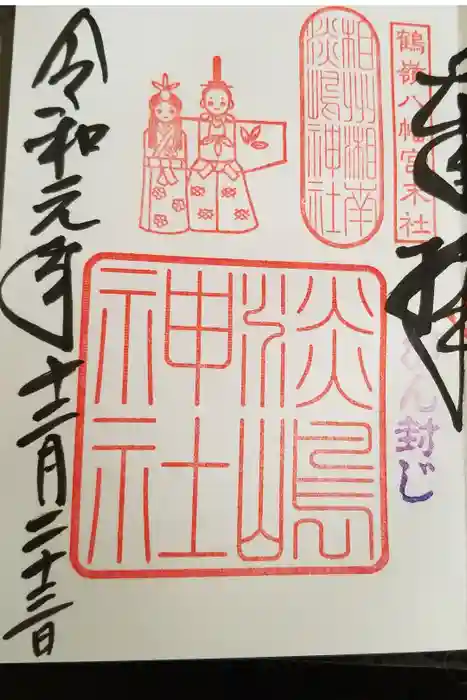 奉拝
鶴嶺八幡宮末社
ん封じ
相州湘南
淡嶋神社
淡嶋
神社
令和元年十二月二十三日